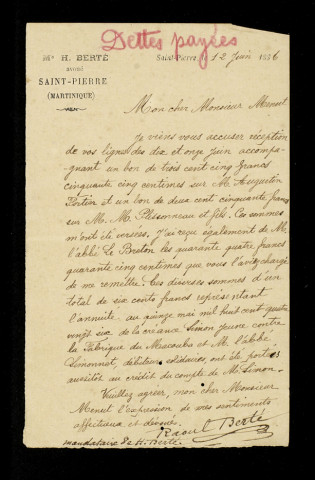 Dettes payées
Mr H. BERTÉ
avoué
SAINT-PIERRE
(MARTINIQUE)
Saint-Pierre, le 12 Juin 1886
Mon cher Monsieur
Je viens vous accuser réception
de vos lignes des dix et onze Juin accompa-
gnant un bon de trois cent cinq francs
cinquante cinq centimes sur M. Augustin
Portier et un bon de deux cent cinquante francs
sur M. M. Plissonneau et fils. Ces sommes
m'ont été versées. J'ai reçu également de M.
l'abbé Le Breton les quarante quatre francs
quarante cinq centimes que vous l'aviez chargé
de me remettre. Ces diverses sommes d'un
total de six cents francs représentant
l'annuité au quinze mai mil huit cent quatre
vingt six de la créance Simon jeune contre
la Fabrique du Macouba et M. l'abbé
Simonnet, débiteurs solidaires, ont été portées
aussitôt au crédit du compte de Mr Simon.
Veuillez agréer, mon cher Monsieur
l'expression de mes sentiments
affectueux et dévoués.
Raoul Berté
mandataire de H. Berté